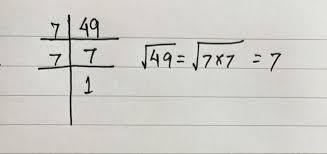 7 | 49
7 | 7 √49 = √7×7 = 7
1